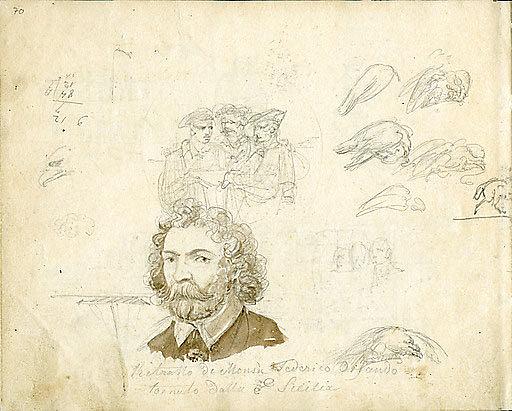 70
21
48
21 6
Ritratto di Monsù Federico Orlando
tornato dalla Sicilia